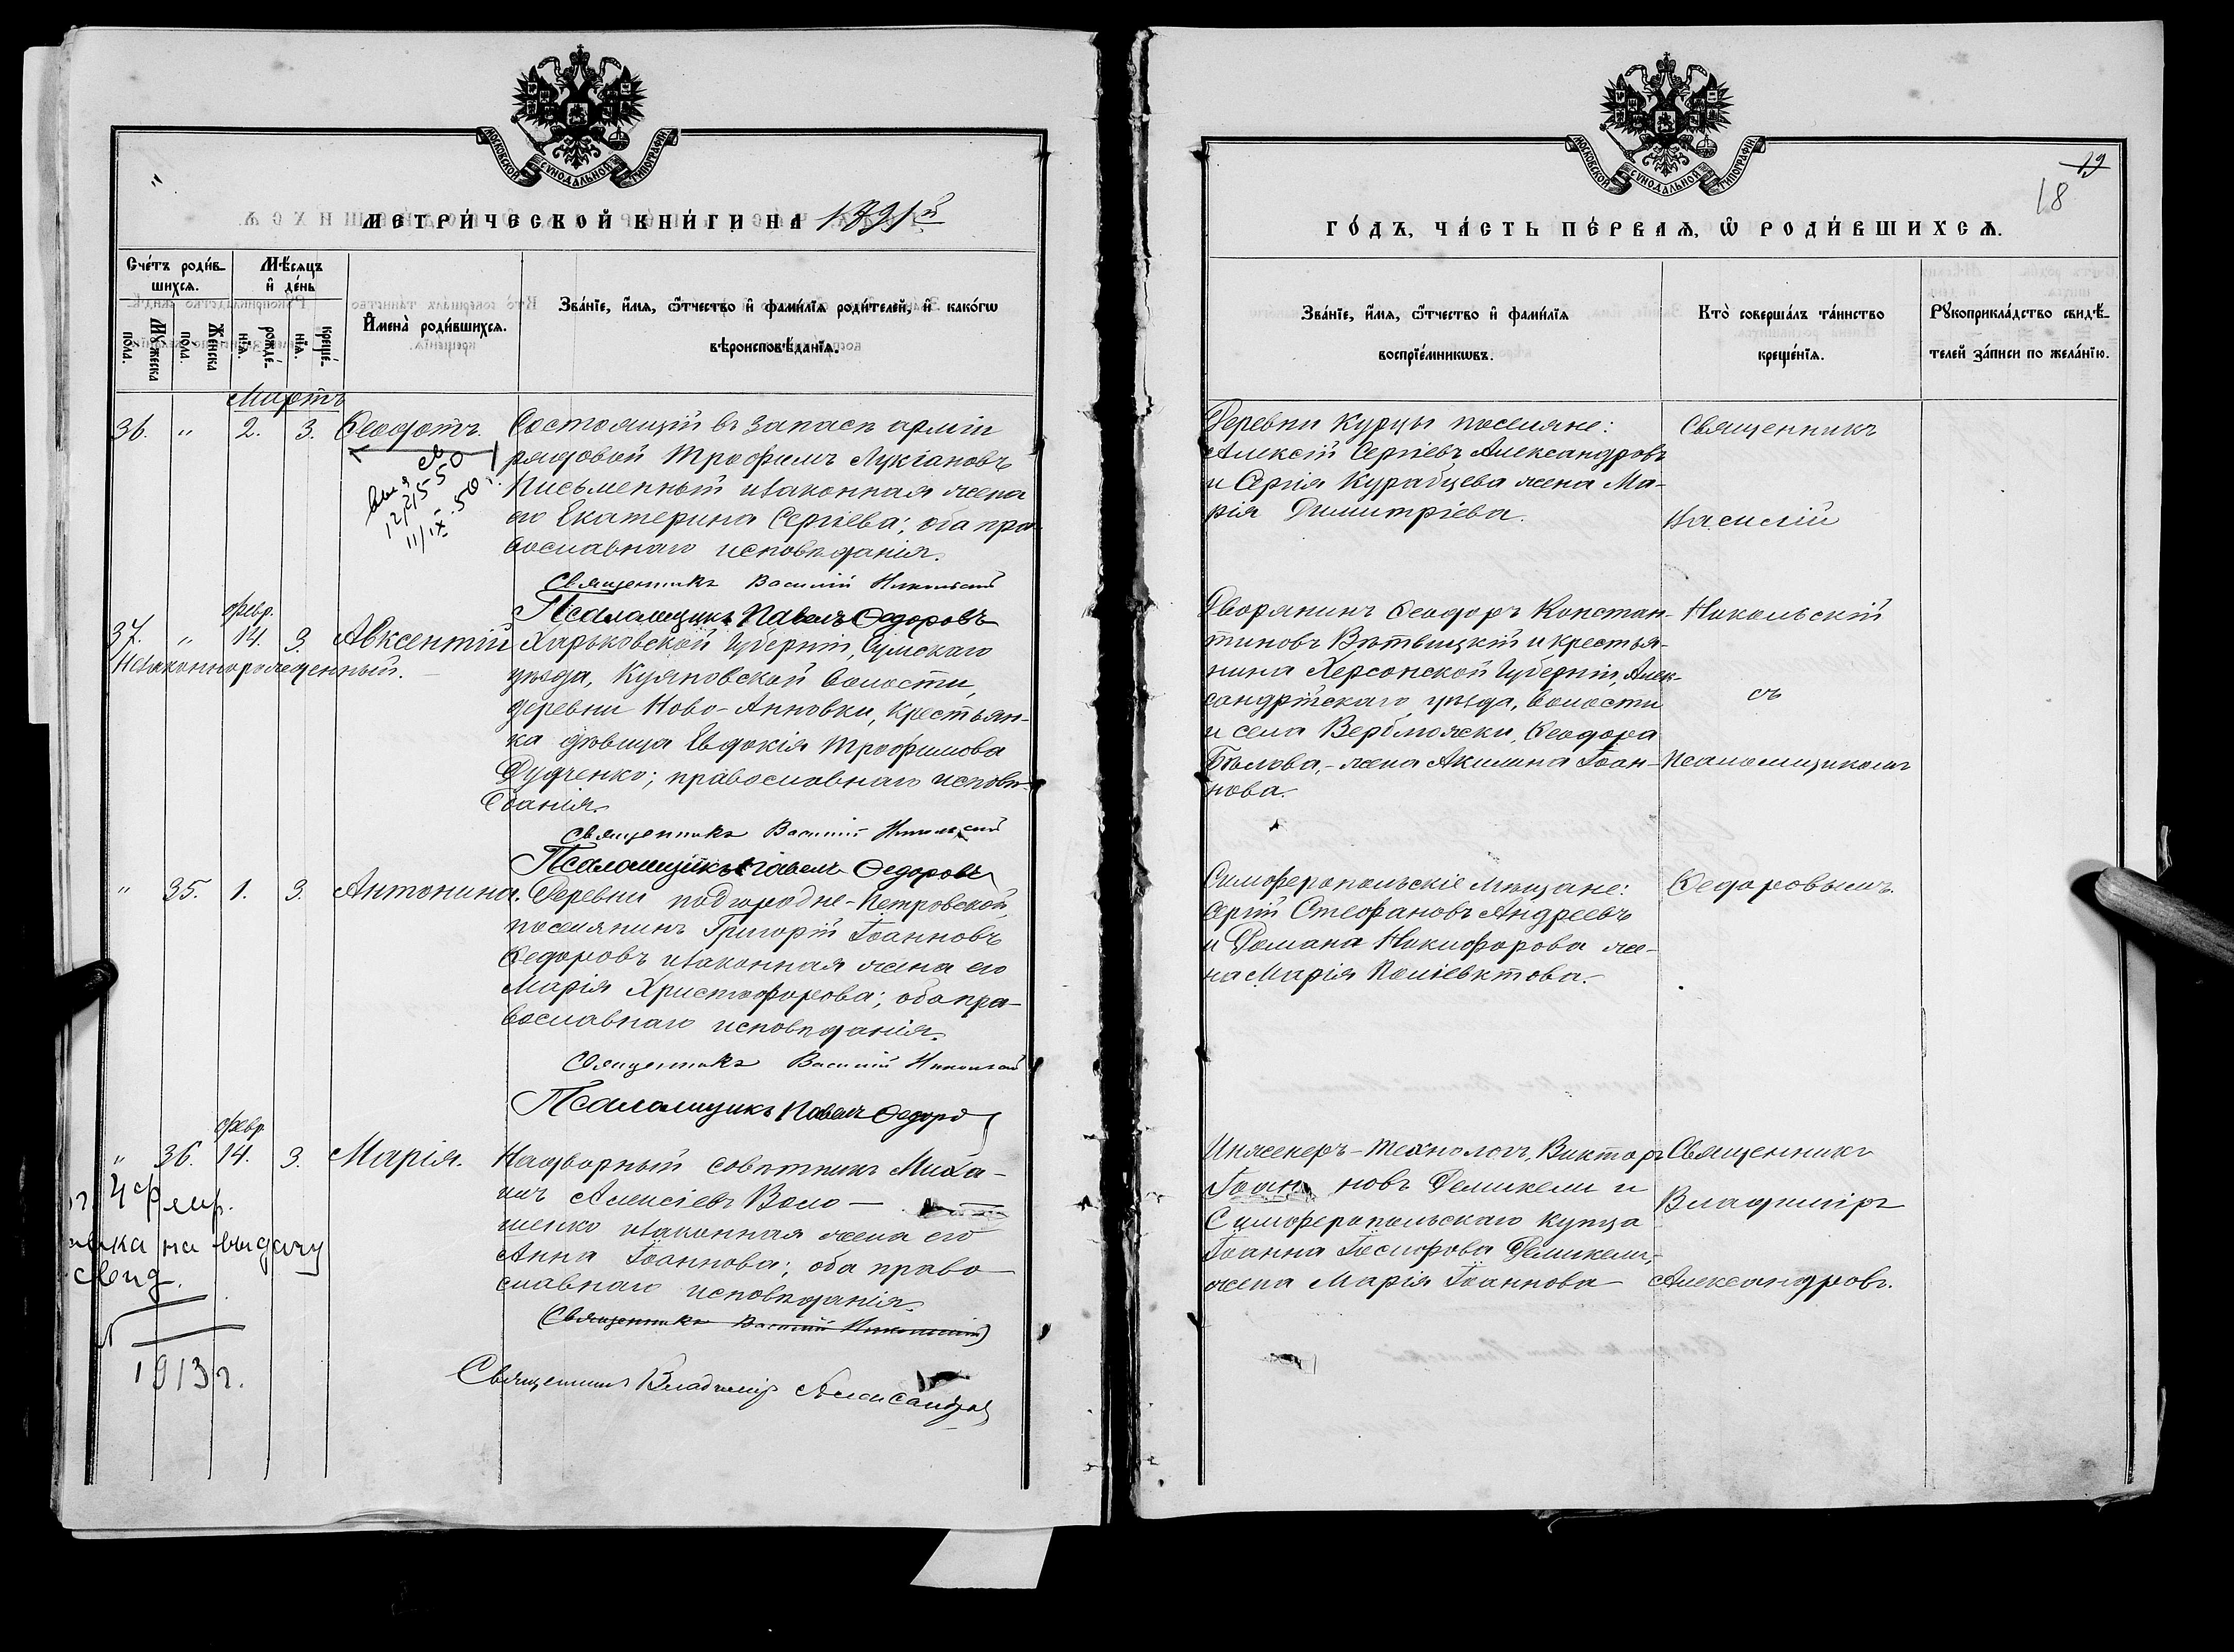 МОСКОВСКОЙ СУНОДАЛЬНОЙ ТИПОГРАФІИ
МЕТРИ́ЧЕСКОЙ КНИ́ГИ НА 1891й
Сче́тъ роди́в-
шихсѧ.
Мꙋ́жеска
пола.
Же́нска
по́ла.
Мѣ́сѧцъ
и҆ де́нь
рожде́-
нїѧ.
креще́-
нїѧ.
И҆мена̀ роди́вшихсѧ.
Зва́нїе, и҆́мѧ, ѻ҆́тчество и҆ фами́лїѧ роди́телей, и҆ како́гѡ
вѣроисповѣ́данїѧ.
Мартъ
36. " 2. 3. Ѳеодотъ.
Состоящій въ запасѣ арміи
рядовой Трофимъ Лукіановъ
Письменный и законная жена
его Екатерина Сергіева; оба пра-
вославнаго исповѣданія.
Священникъ Василій Никольскій
Псаломщикъ Павелъ Ѳедоровъ
12/2/55
11/IX 50 г.
февр.
37. " 14. 3. Авксентій
Незаконнорожденный.
Харьковской Губерніи, Сумскаго
уѣзда, Куяновской волости,
деревни Ново-Анновки, крестьян-
ка дѣвица Евдокія Трофимова
Дудченко; православнаго исповѣ-
данія.
Священникъ Василій Никольскій
Псаломщикъ Павелъ Ѳедоровъ
" 35. 1. 3. Антонина.
Деревни подгородне-Петровской,
поселянинъ Григорій Іоанновъ
Ѳедоровъ и законная жена его
Марія Христофорова; оба пра-
вославнаго исповѣданія.
Священникъ Василій Никольскій
Псаломщикъ Павелъ Ѳедоровъ
февр
" 36. 14. 3. Марія.
Надворный совѣтникъ Миха-
илъ Алексіевъ Воло-
шенко и законная жена его
Анна Іоаннова; оба право-
славнаго исповѣданія.
Священникъ Василій Никольскій
Священникъ Владиміръ Александровъ
на выдачу
свид.
1913 г.
МОСКОВСКОЙ СУНОДАЛЬНОЙ ТИПОГРАФІИ
19
18
ГО́ДЪ, ЧА́СТЬ ПЕ́РВАѦ, Ѡ҆ РОДИ́ВШИХСѦ.
Зва́нїе, и҆́мѧ, ѻ҆́тчество и҆ фами́лїѧ
воспрїе́мникѡвъ.
Кто̀ соверша́лъ та́инство
креще́нїѧ.
Рꙋкоприкла́дство свидѣ́-
телей за́писи по жела́нїю.
Деревни Курцы поселяне:
Алексій Сергіевъ Александровъ
и Сергія Курабцева жена Ма-
рія Димитріева.
Священникъ
Василій
Дворянинъ Ѳеодоръ Констан-
тиновъ Вѣтвицкій и крестья-
нина Херсонской Губерніи, Алек-
сандрійскаго уѣзда, волости
и села Верблюжки, Ѳеодора
Бѣлова, - жена Акилина Іоан-
нова.
Никольскій
съ
Псаломщикомъ
Симферопольскіе мѣщане:
Сергій Стефановъ Андреевъ
и Романа Никифорова же-
на Марія Поліевктова.
Ѳедоровымъ.
Инженеръ-технологъ, Викторъ
Іоанновъ Демикели и
Симферопольскаго купца
Іоанна Іосифова Демикели,
жена Марія Іоаннова
Священникъ
Владиміръ
Александровъ.